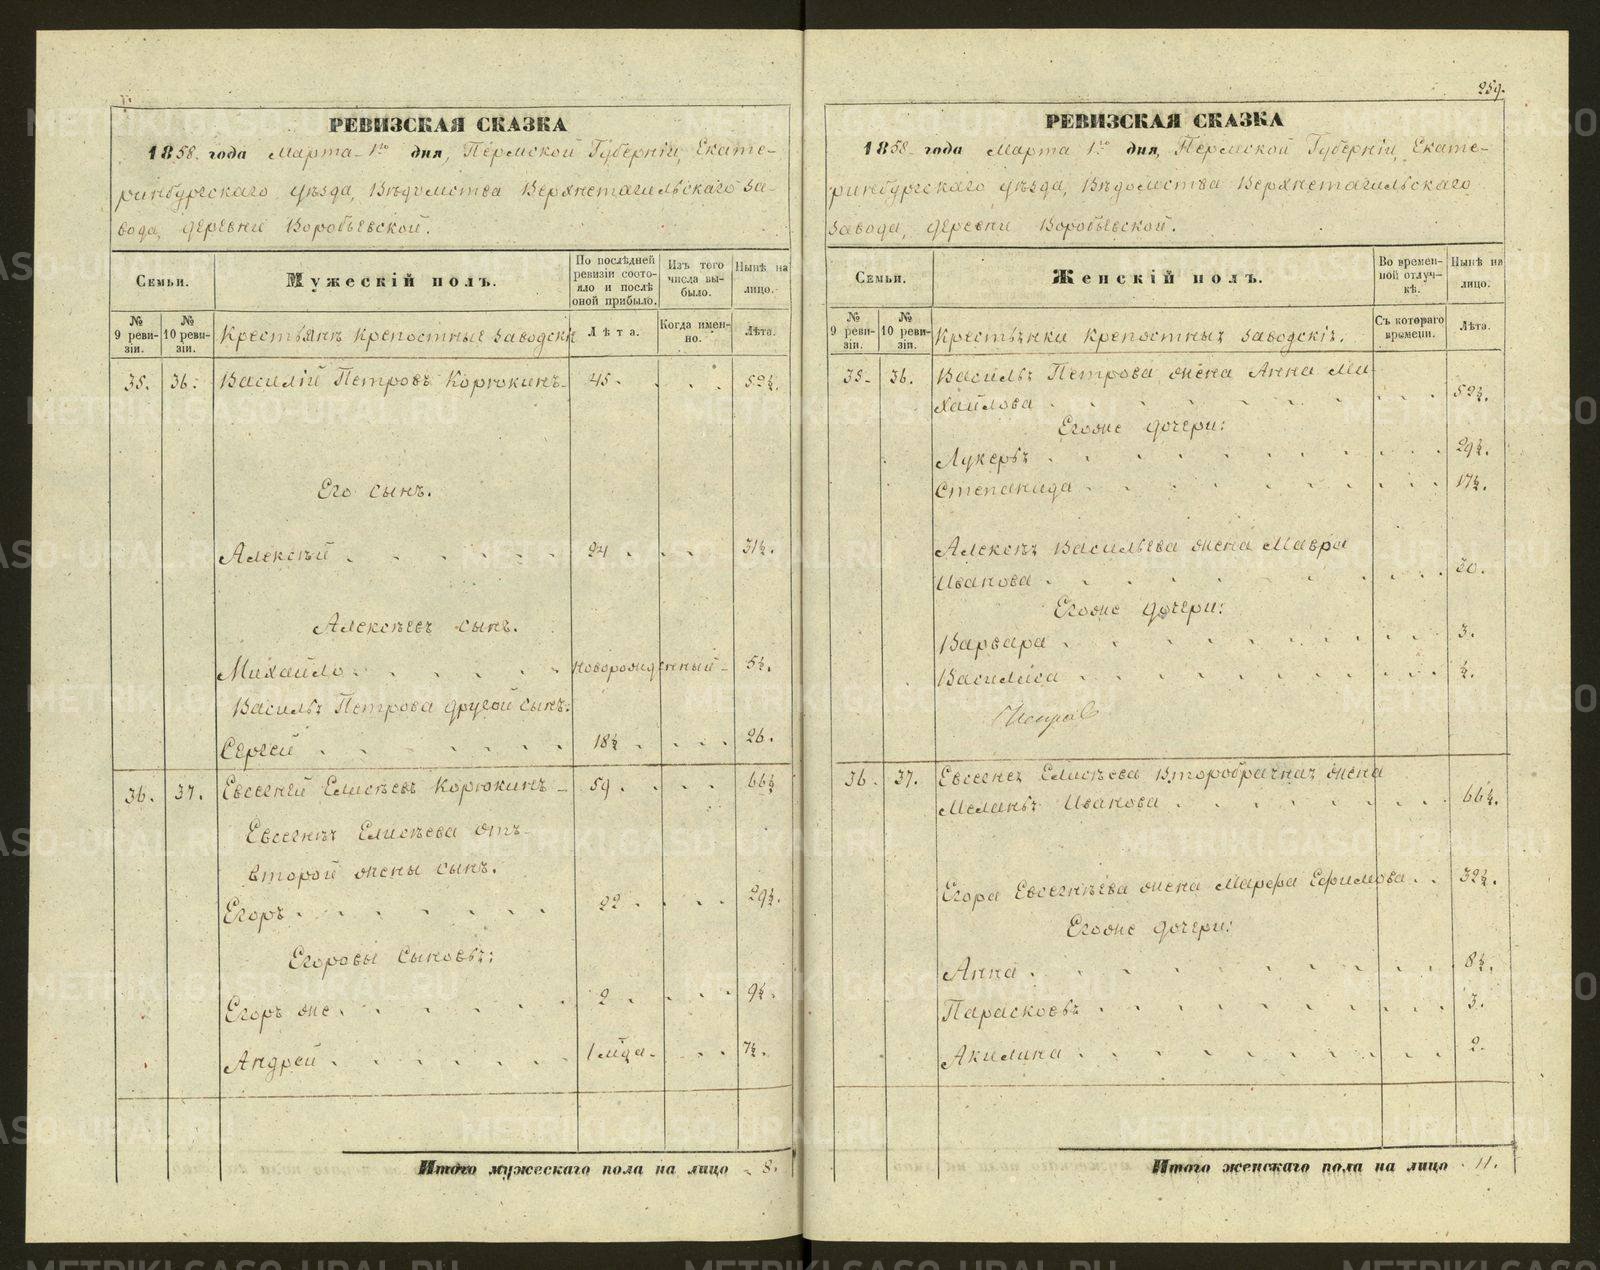 259.
РЕВИЗСКАЯ СКАЗКА
1858. года Марта 1го дня, Пермской Губерніи, Екате-
ринбургскаго уѣзда, Вѣдомства Верхнетагильскаго за-
вода, деревни Воробьевской.
Семьи.
Мужескій полъ.
По послѣдней ревизіи состо-яло и послѣ оной прибыло.
Изъ того числа вы-было.
Нынѣ на лицо.
№ 9 реви-зіи.
№ 10 реви-зіи.
Крестьянъ крепостные заводскіе
Лѣта.
Когда имен-но.
Лѣта.
35. 36. Василій Петровъ Корюкинъ 45. 52½.
Его сынъ.
Алексѣй 24 31½.
Алексѣевъ сынъ.
Михайло новорожденный 5½.
Василья Петрова другой сынъ:
Сергей 18½ 26.
36. 37. Евсегней Елисѣевъ Корюкинъ 59. 66½
Евсегнея Елисѣева отъ
второй жены сынъ.
Егоръ 22. 29½.
Егоровы Сыновья:
Егоръ же 2 9½.
Андрей 1 мѣца. 7½.
Итого мужескаго пола на лицо 8.
РЕВИЗСКАЯ СКАЗКА
1858 года Марта 1го дня, Пермской Губерніи, Екате-
ринбургскаго уѣзда, Вѣдомства Верхнетагильскаго
завода, деревни Воробьевской.
Семьи.
Женскій полъ.
Во времен-ной отлуч-кѣ.
Нынѣ на лицо.
№ 9 реви-зіи.
№ 10 реви-зіи.
Крестьянки крепостныя заводскія.
Съ котораго времени.
Лѣта.
35. 36. Василья Петрова жена Анна Ми-
хайлова 52½.
Егоже дочери:
Лукерья 29½.
Степанида 17½.
Алексѣя Васильева жена Мавра
Иванова 30.
Егоже дочери:
Варвара 3.
Василиса ½.
36. 37. Евсегнея Елисѣева второбрачная жена
Меланья Иванова 66½.
Егора Евсегнѣева жена Марфа Ефимова 32½.
Егоже дочери:
Анна 8½.
Парасковья 3.
Акилина 2.
Итого женскаго пола на лицо 11.
METRIKI.GASO-URAL.RU